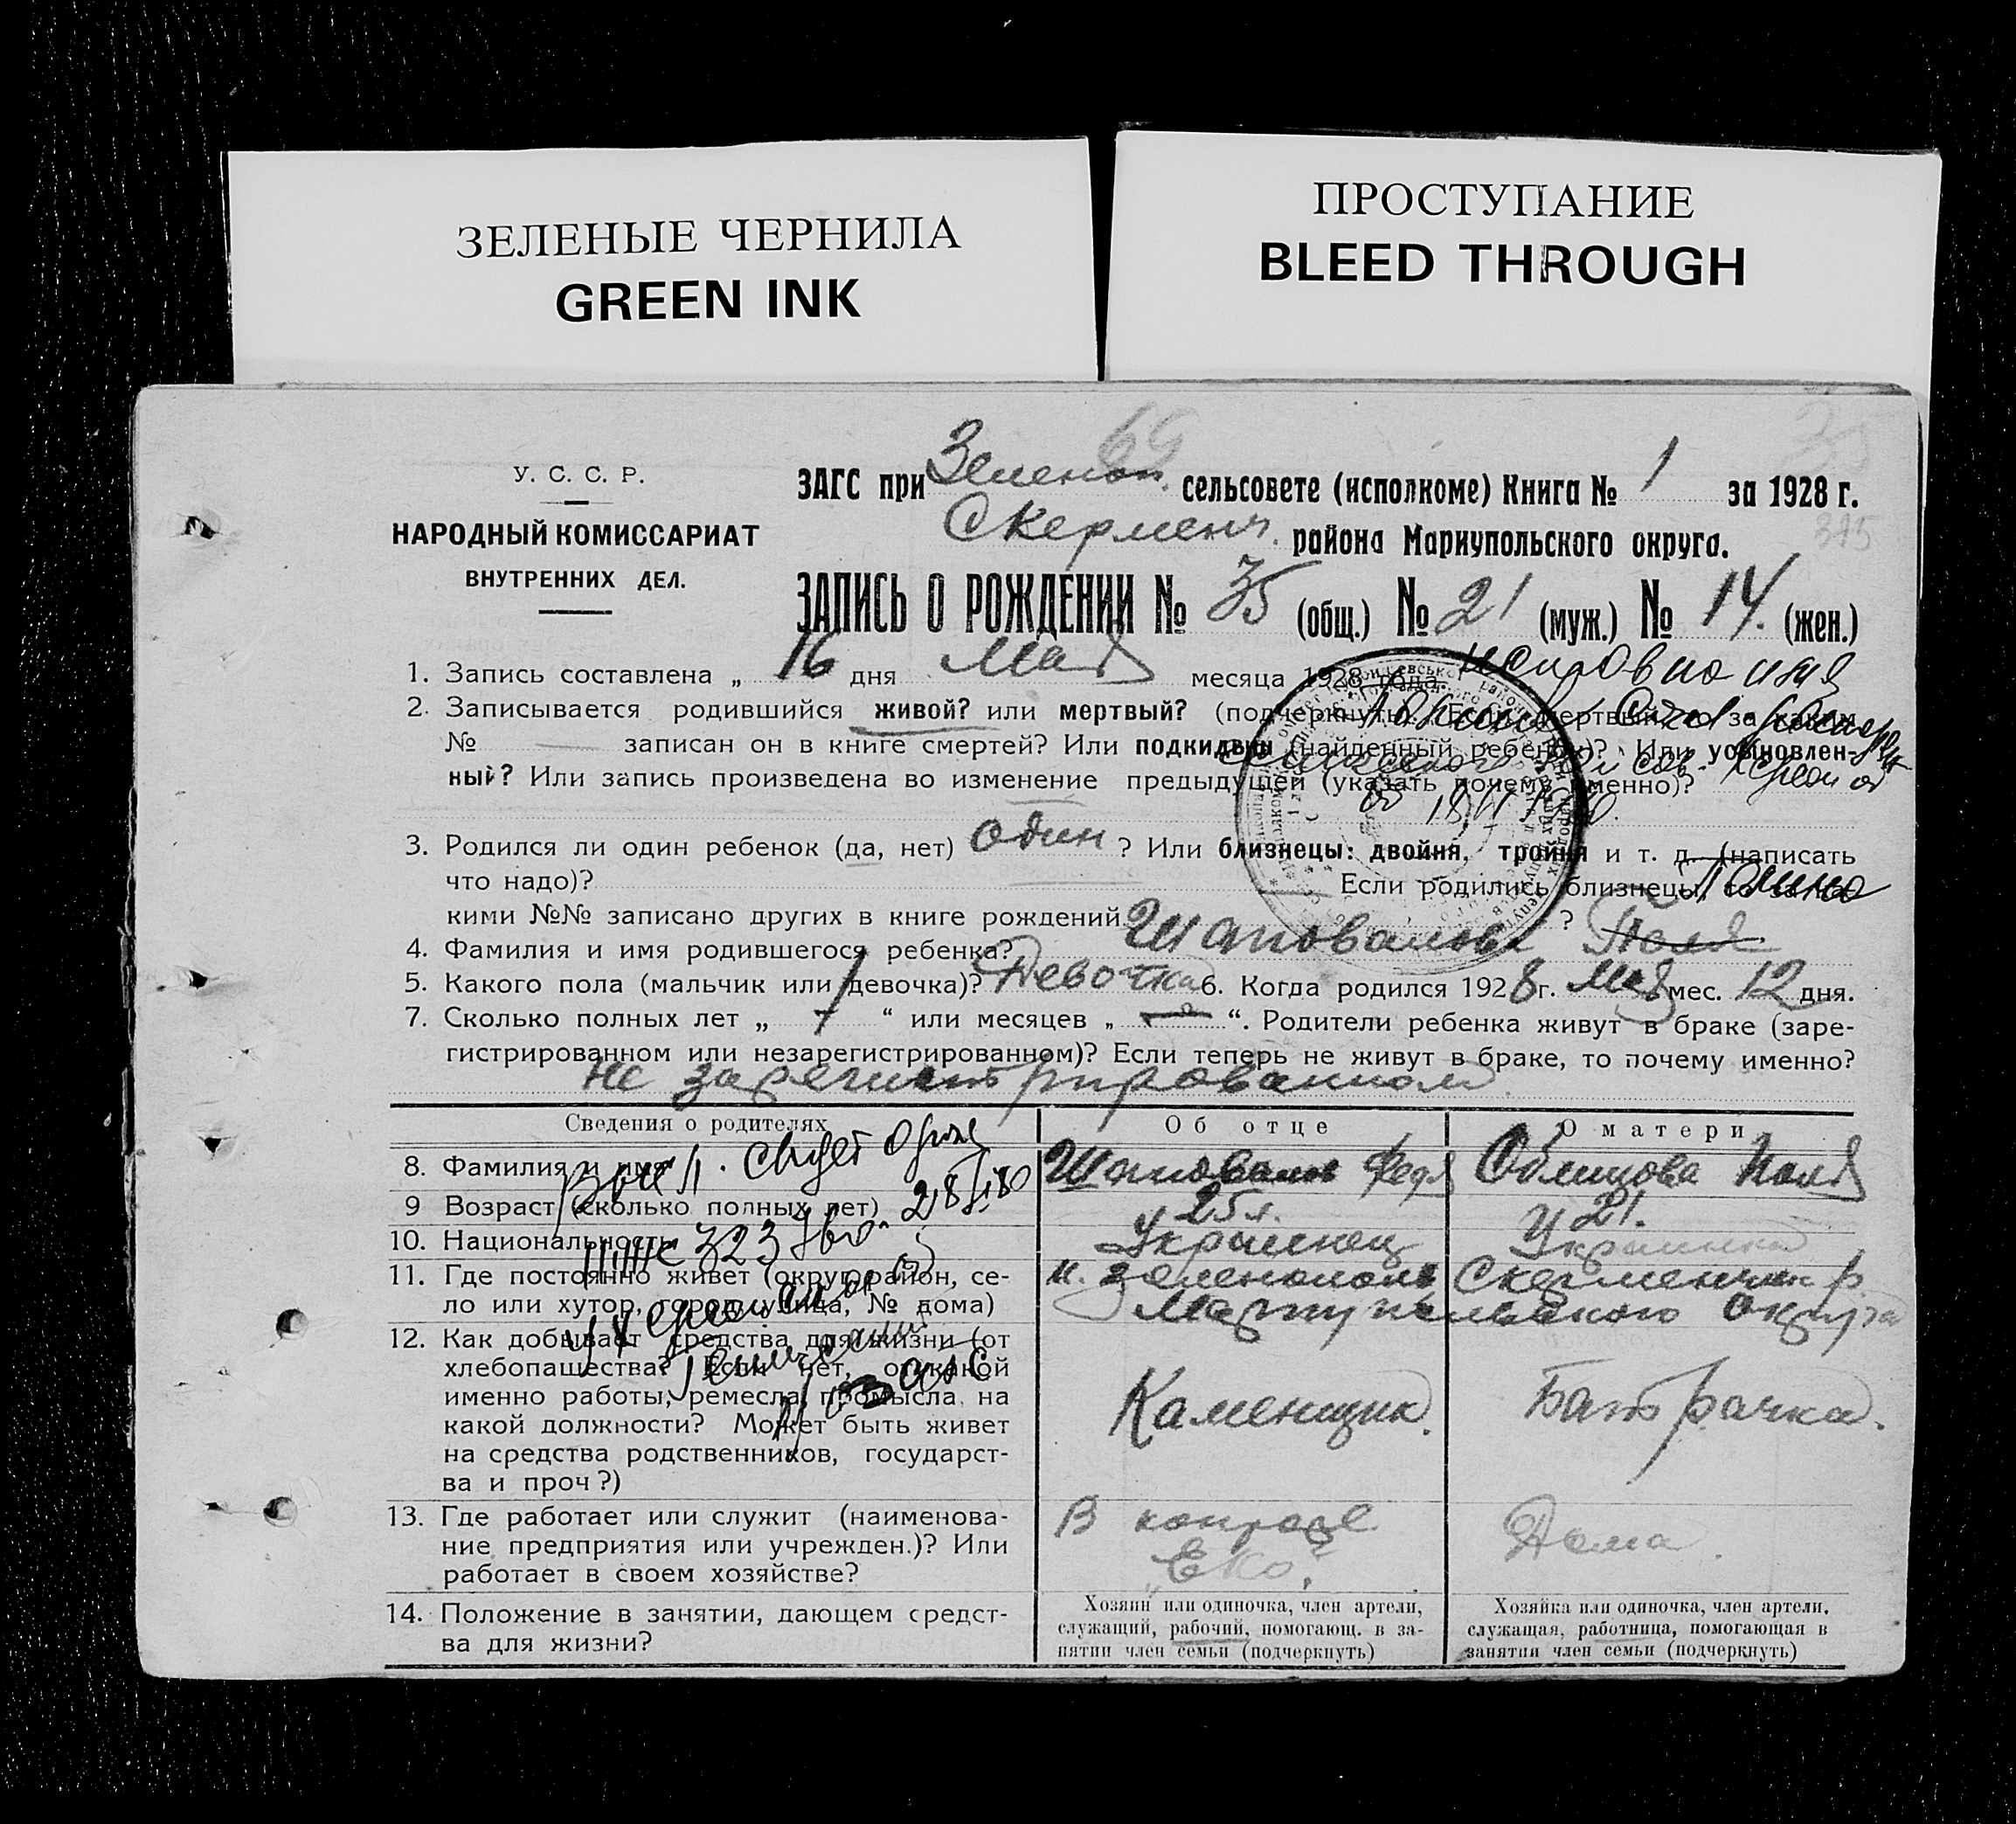 ЗЕЛЕНЫЕ ЧЕРНИЛА
GREEN INK
ПРОСТУПАНИЕ
BLEED THROUGH
У. С. С. Р.
НАРОДНЫЙ КОМИССАРИАТ
ВНУТРЕННИХ ДЕЛ.
69
ЗАГС при Зеленоп. сельсовете (исполкоме) Книга № 1 за 1928 г.
Скерменч. района Мариупольского округа.
ЗАПИСЬ О РОЖДЕНИИ № 35 (общ.) № 21 (муж.) № 14. (жен.)
1. Запись составлена „ 16 дня Мая месяца 1928 года
2. Записывается родившийся живой? или мертвый? (подчеркнуть). Если мертвый, то за каким
№ — записан он в книге смертей? Или подкидыш (найденный ребенок)? Или усыновлен-
ный? Или запись произведена во изменение предыдущей (указать почему именно)?
3. Родился ли один ребенок (да, нет) один ? Или близнецы: двойня, тройня и т. д. (написать
что надо)? Если родились близнецы, то за ка-
кими №№ записано других в книге рождений ?
4. Фамилия и имя родившегося ребенка? Шаповалова Поля
5. Какого пола (мальчик или девочка)? Девочка 6. Когда родился 1928 г. Мая мес. 12 дня.
7. Сколько полных лет „ — “ или месяцев „ “. Родители ребенка живут в браке (заре-
гистрированном или незарегистрированном)? Если теперь не живут в браке, то почему именно?
Не зарегистрированном.
Сведения о родителях
Об отце
О матери
8. Фамилия и имя
Шаповалов Федя
Облицова Поля
9 Возраст (сколько полных лет)
25 л.
21.
10. Национальность
Украинец
Украинка
11. Где постоянно живет (округ, район, се-
ло или хутор, город, улица, № дома)
Скерменчик р.
Мариупольского округа
12. Как добывает средства для жизни (от
хлебопашества? Если нет, от какой
именно работы, ремесла, промысла, на
какой должности? Может быть живет
на средства родственников, государст-
ва и проч?)
Каменщик.
Батрачка.
13. Где работает или служит (наименова-
ние предприятия или учрежден.)? Или
работает в своем хозяйстве?
В
Дома.
14. Положение в занятии, дающем средст-
ва для жизни?
Хозяин или одиночка, член артели,
служащий, рабочий, помогающ. в за-
нятии член семьи (подчеркнуть)
Хозяйка или одиночка, член артели,
служащая, работница, помогающая в
занятии член семьи (подчеркнуть)